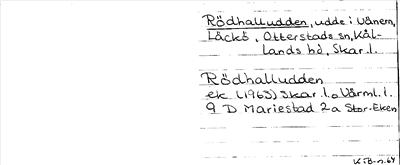 Rödhalludden, udde i Vänern,
Läckö, Otterstads sn, Kål-
lands hd, Skar.l.
Rödhalludden
ek (1963) Skar.l. o Värml.l.
9 D Mariestad 2a Stor-Eken
KiB-n.64